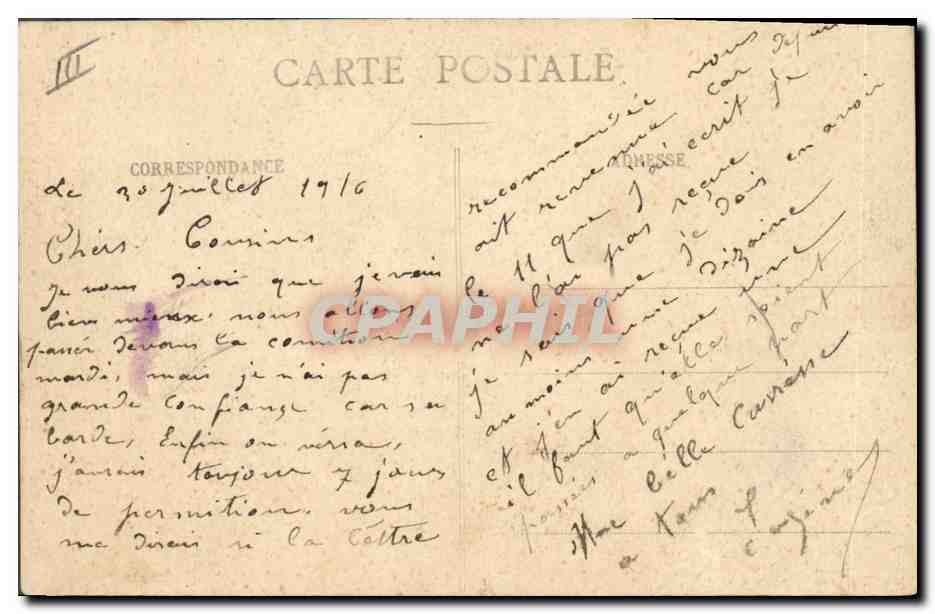 III
CARTE POSTALE
CORRESPONDANCE
ADRESSE
Le 30 Juillet 1916
Chérs Cousins
Je vous dirai que je vais
bien mieux. nous allons
passér devans la comition
mardi, mais je n'ai pas
grande confiance car sa
barde, Enfin on vérra,
j'aurais toujour 7 jours
de permition. vous
me dirais si la léttre
recommandée vous
ait revenue car depuis
le 11 que j'ai écrit je
ne l'ai pas reçue
je sais que je dois en avoir
au moins une dizaine
et j'en ai reçue une
il faut qu'élle soient
passés a quelque part
Une bélle Carrésse
a tous
Eugéne
CPAPHIL